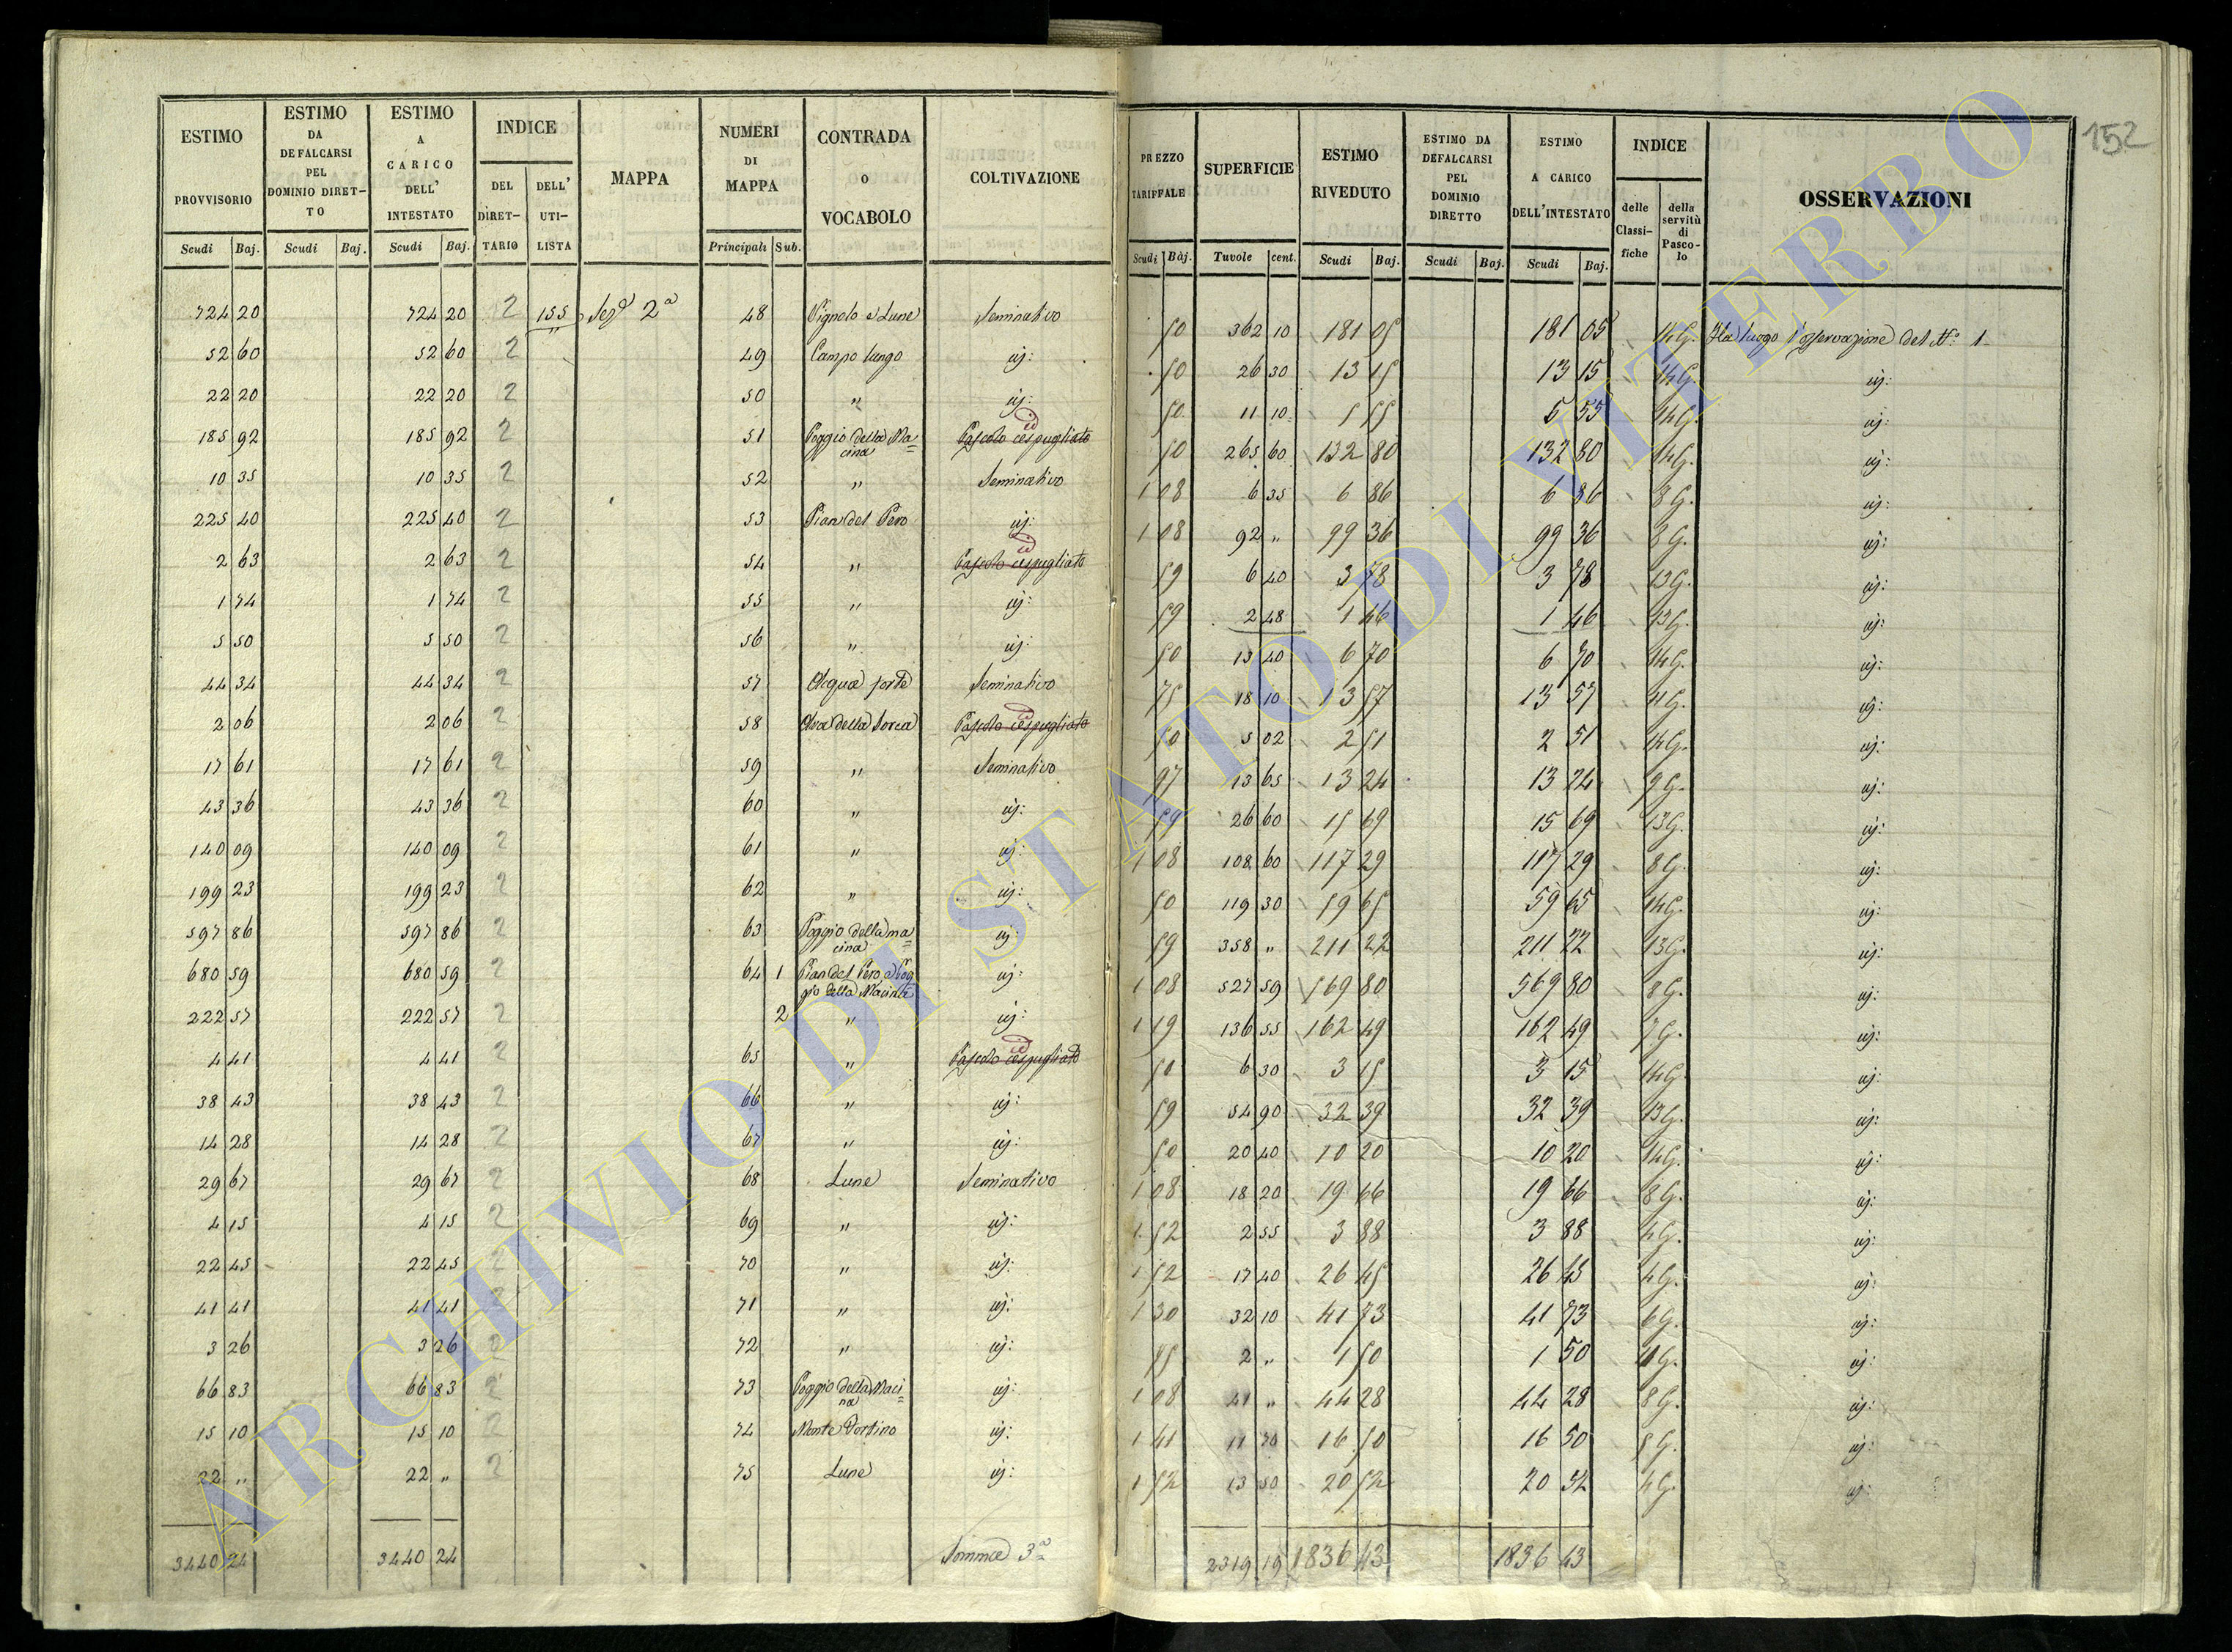 ESTIMO PROVVISORIO Scudi Baj.
ESTIMO DA DEFALCARSI PEL DOMINIO DIRETTO Scudi Baj.
ESTIMO A CARICO DELL' INTESTATO Scudi Baj.
INDICE DEL DIRETTARIO DELL' UTILISTA
MAPPA
NUMERI DI MAPPA Principali Sub.
CONTRADA O VOCABOLO
COLTIVAZIONE
PREZZO TARIFFALE Scudi Baj.
SUPERFICIE Tavole cent.
ESTIMO RIVEDUTO Scudi Baj.
ESTIMO DA DEFALCARSI PEL DOMINIO DIRETTO Scudi Baj.
ESTIMO A CARICO DELL'INTESTATO Scudi Baj.
INDICE delle Classifiche della servitù di Pascolo
OSSERVAZIONI
152
724 20 724 20 2 155 Seg. 2a 48 Vignolo e Lune Seminativo 50 362 10 181 05 181 05 14 G. Ha luogo l'osservazione del No. 1
52 60 52 60 2 49 Campo lungo iij: 50 26 30 13 15 13 15 14 G. iij:
22 20 22 20 2 50 " iij: 50 11 10 5 55 5 55 14 G. iij:
185 92 185 92 2 51 Poggio della Macina Pascolo cespugliato id 50 265 60 132 80 132 80 14 G. iij:
10 35 10 35 2 52 " Seminativo 1 08 6 35 6 86 6 86 8 G. iij:
225 40 225 40 2 53 Pian del Pero iij: 1 08 92 " 99 36 99 36 8 G. iij:
2 63 2 63 2 54 " Pascolo cespugliato id 59 6 40 3 78 3 78 13 G. iij:
1 74 1 74 2 55 " iij: 59 2 48 1 46 1 46 13 G. iij:
5 50 5 50 2 56 " iij: 50 13 40 6 70 6 70 14 G. iij:
44 34 44 34 2 57 Acqua forte Seminativo 75 18 10 13 57 13 57 11 G. iij:
2 06 2 06 2 58 Ara della Sorca Pascolo cespugliato id 50 5 02 2 51 2 51 14 G. iij:
17 61 17 61 2 59 " Seminativo 97 13 65 13 24 13 24 9 G. iij:
43 36 43 36 2 60 " iij: 59 26 60 15 69 15 69 13 G. iij:
140 09 140 09 2 61 " iij: 1 08 108 60 117 29 117 29 8 G. iij:
199 23 199 23 2 62 " iij: 50 119 30 59 65 59 65 14 G. iij:
597 86 597 86 2 63 Poggio della macina iij: 59 358 " 211 22 211 22 13 G. iij:
680 59 680 59 2 64 1 Pian del Pero e Poggio della Macina iij: 1 08 527 59 569 80 569 80 8 G. iij:
222 57 222 57 2 2 " iij: 1 19 136 55 162 49 162 49 7 G. iij:
4 41 4 41 2 65 " Pascolo cespugliato id 50 6 30 3 15 3 15 14 G. iij:
38 43 38 43 2 66 " iij: 59 54 90 32 39 32 39 13 G. iij:
14 28 14 28 2 67 " iij: 50 20 40 10 20 10 20 14 G. iij:
29 67 29 67 2 68 Lune Seminativo 1 08 18 20 19 66 19 66 8 G. iij:
4 15 4 15 2 69 " iij: 1 52 2 55 3 88 3 88 4 G. iij:
22 45 22 45 2 70 " iij: 1 52 17 40 26 45 26 45 4 G. iij:
41 41 41 41 2 71 " iij: 1 30 32 10 41 73 41 73 6 G. iij:
3 26 3 26 2 72 " iij: 75 2 " 1 50 1 50 11 G. iij:
66 83 66 83 2 73 Poggio della Macina iij: 1 08 41 " 44 28 44 28 8 G. iij:
15 10 15 10 2 74 Monte Fortino iij: 1 41 11 70 16 50 16 50 5 G. iij:
22 " 22 " 2 75 Lune iij: 1 52 13 50 20 52 20 52 4 G. iij:
3440 24 3440 24 Somma 3a 2319 19 1836 43 1836 43
ARCHIVIO DI STATO DI VITERBO